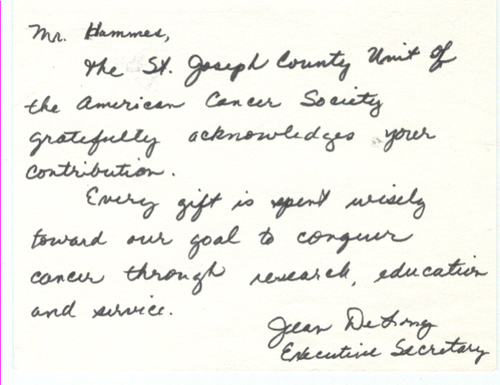 Mr. Hammes,
The St. Joseph County Unit of
the American Cancer Society
gratefully acknowledges your
contribution.
Every gift is spent wisely
toward our goal to conquer
cancer through research, education
and service.
Jean DeLong
Executive Secretary